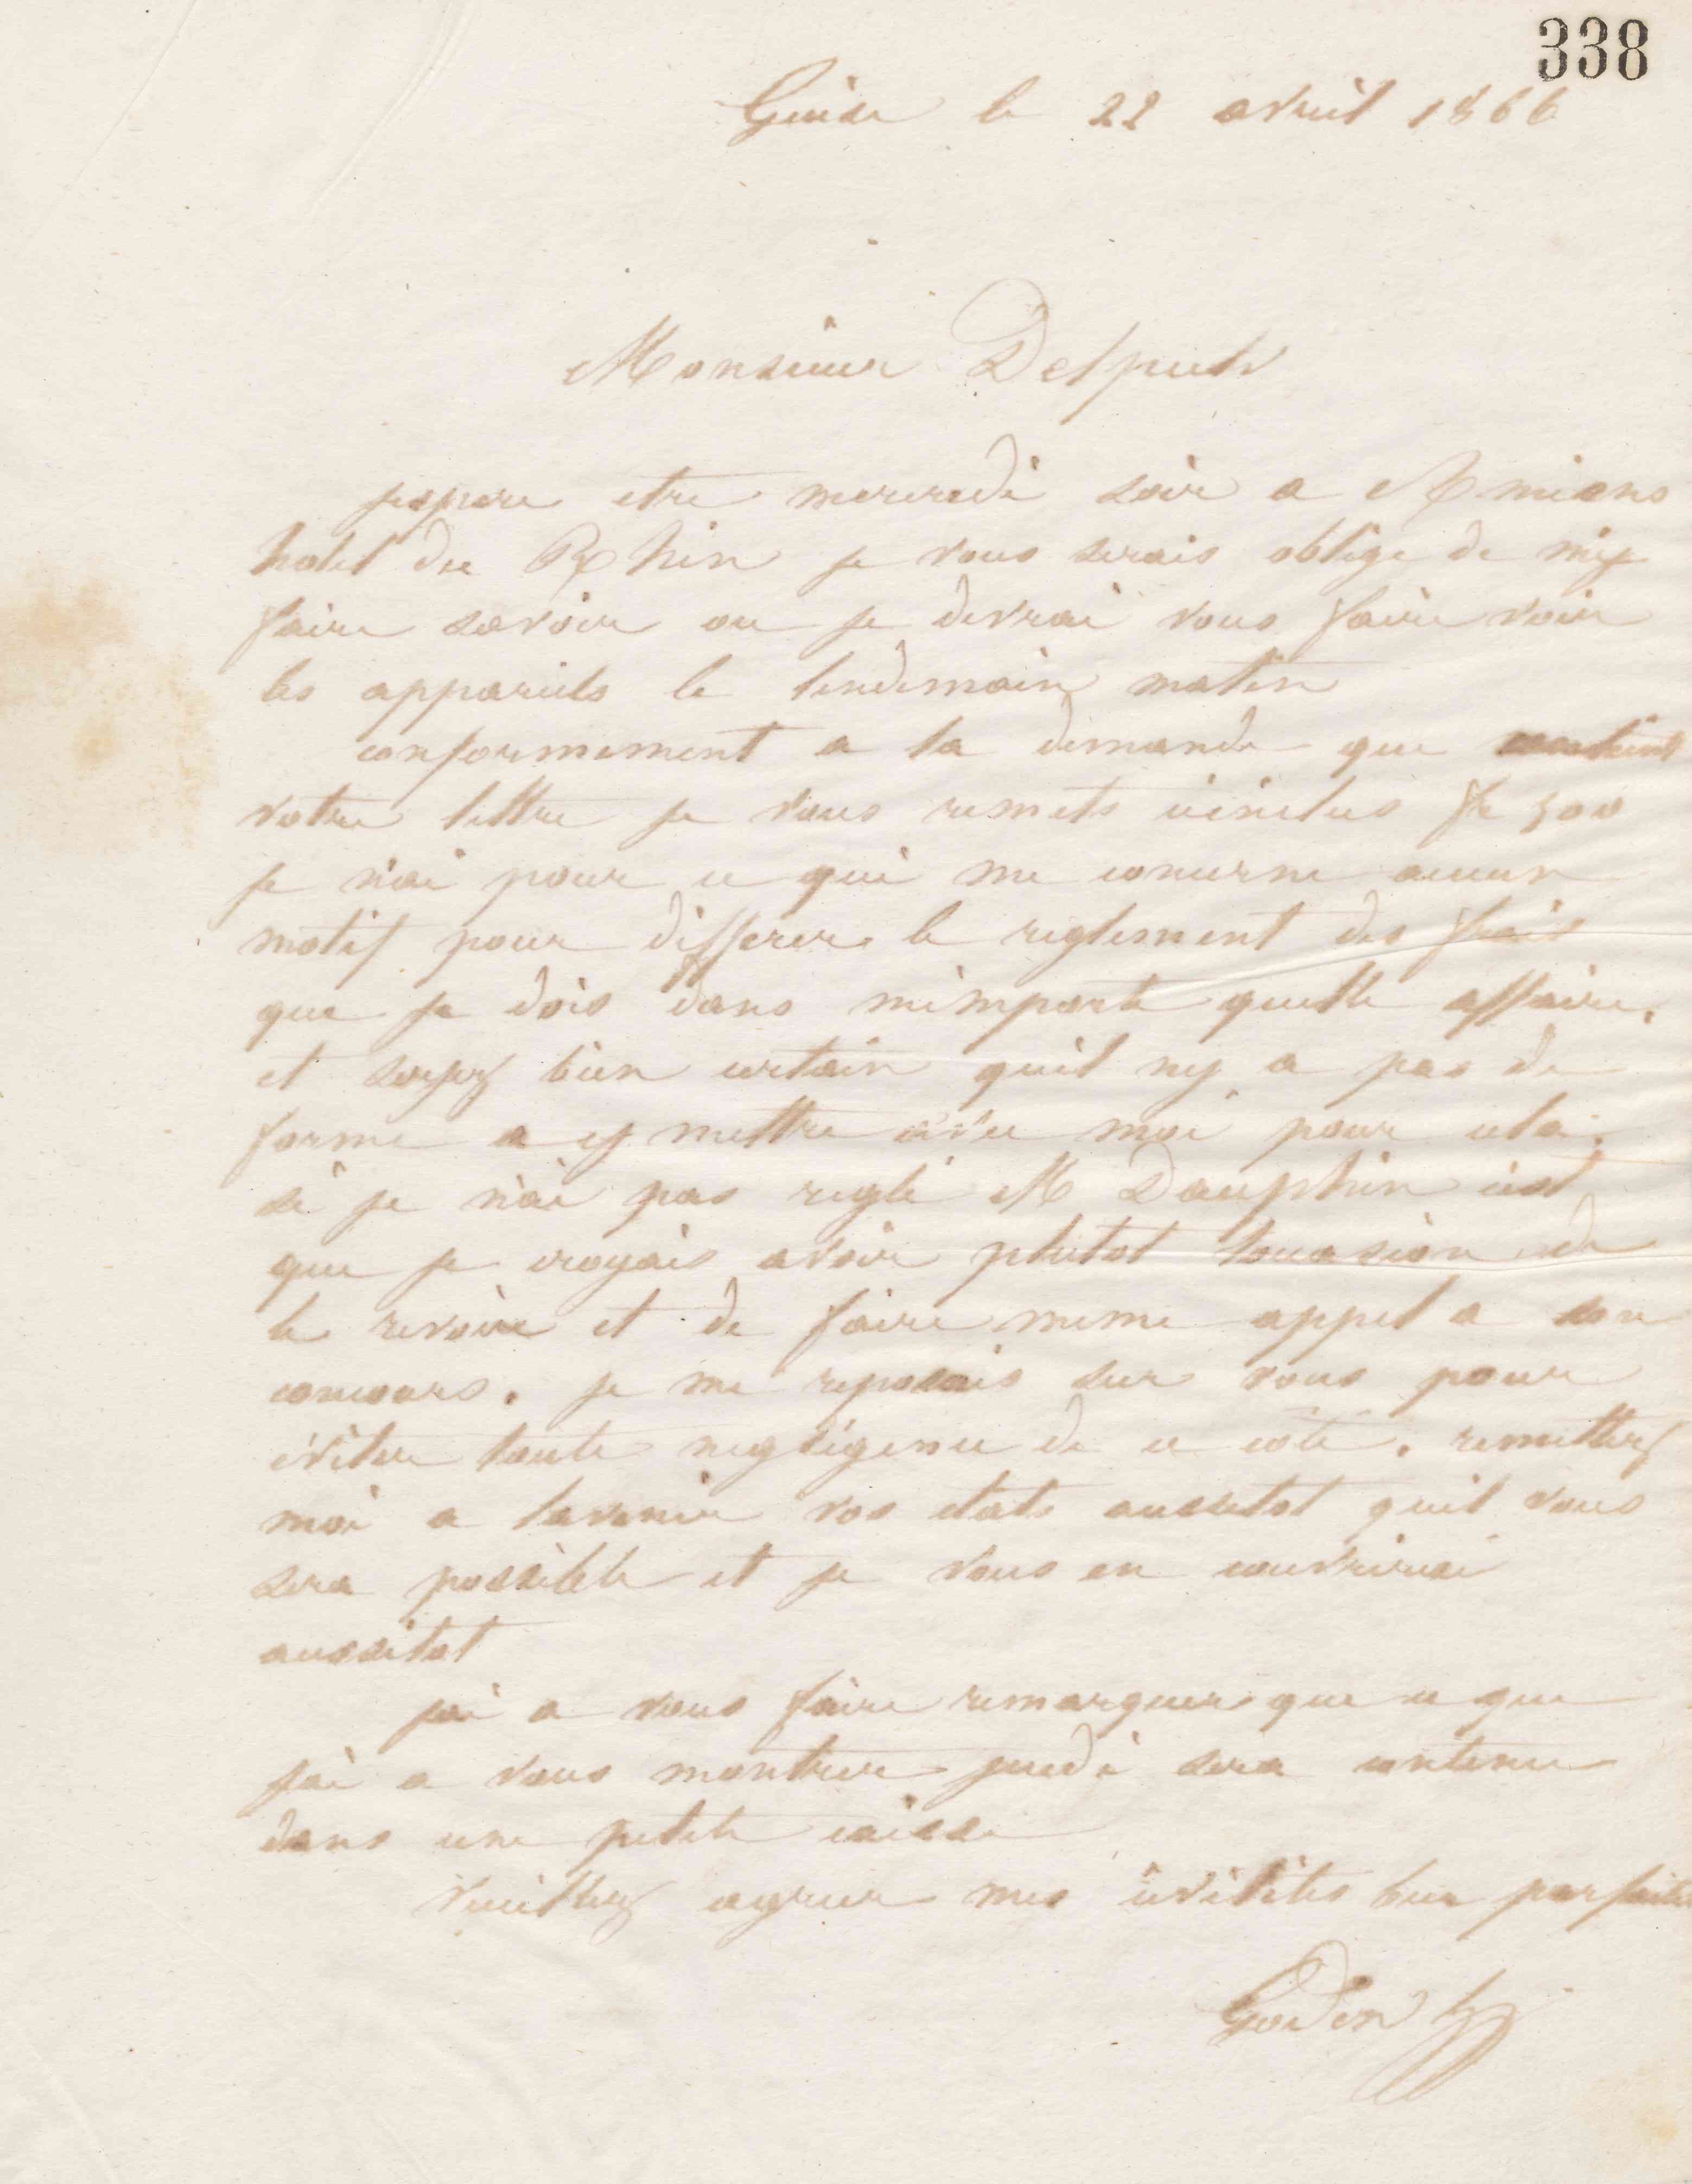 338
Guise le 22 avril 1866
Monsieur Delpech
jespere etre mercredi soir a Amiens
hotel du Rhin je vous serais oblige de my
faire savoir ou je devrai vous faire voir
les appareils le lendemain matin
conformement a la demande que contient
votre lettre je vous remets iinclus fr 500
je nai pour ce qui me concerne aucun
motif pour differer le reglement des frais
que je dois dans nimporte quelle affaire.
et soyez bien certain quil ny a pas de
forme a y mettre avec moi pour cela.
si je nai pas reglé M Dauphin cest
que je croyais avoir plutot loccasion de
le revoir et de faire meme appel a son
concours. je me reposais sur vous pour
éviter toute negligence de ce coté. remettez
moi a lavenir vos etats aussitot quil vous
sera possible et je vous en couvrirai
aussitot
jai a vous faire remarquer que ce que
jai a vous montrer jeudi sera contenu
dans une petite caisse
Veuillez agreer mes civilites bien parfaites
Godin